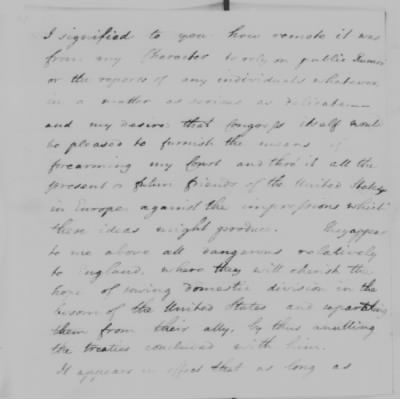 I signified to you how remote it was
from my Character to rely on public Rumor
or the reports of any individuals whatever
in a matter as serious as delicate—
and my desire that Congress itself would
be pleased to furnish the means of
forearming my Court and thro' it all the
present or future friends of the United States
in Europe against the impressions which
these ideas might produce. They appear
to me above all dangerous relatively
to England, where they will cherish the
hope of sowing domestic division in the
bosom of the United States and separating
them from their ally, by thus anulling
the treaties concluded with him.
It appears in effect that as long as